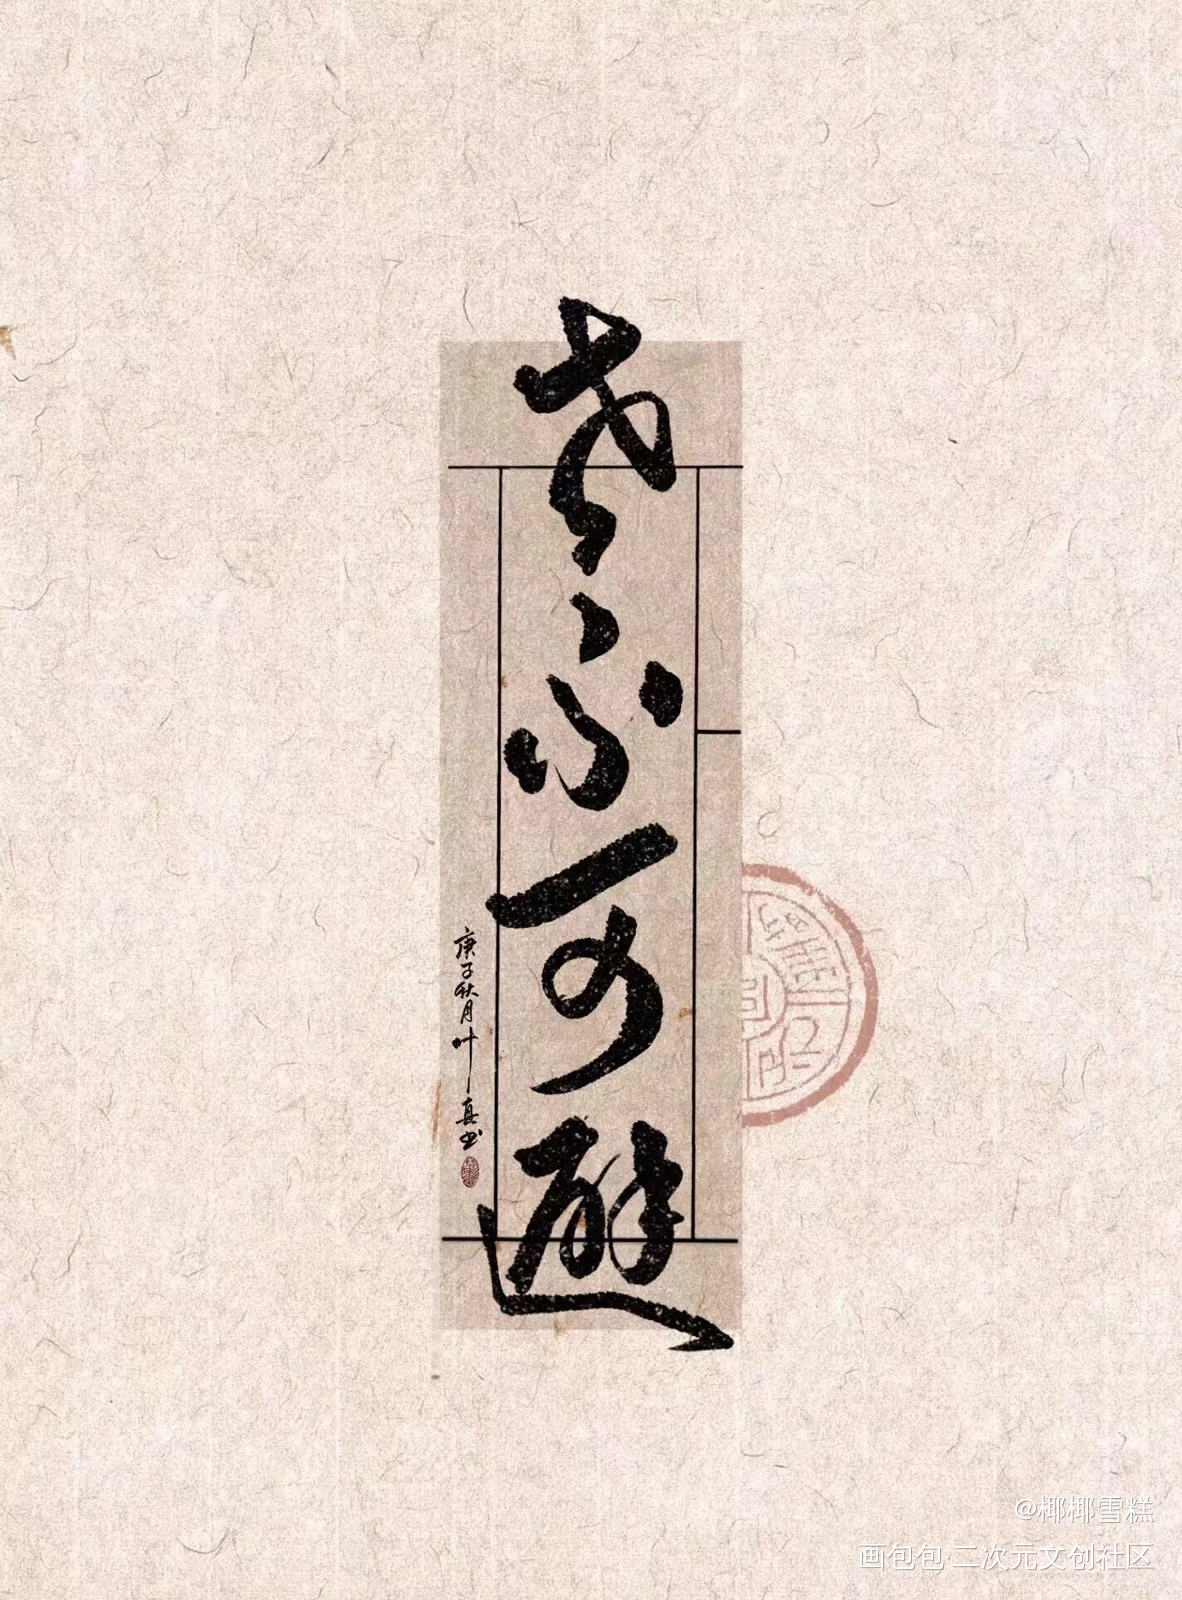 老不可避
庚子秋月叶真书
@椰椰雪糕
画包包·二次元文创社区